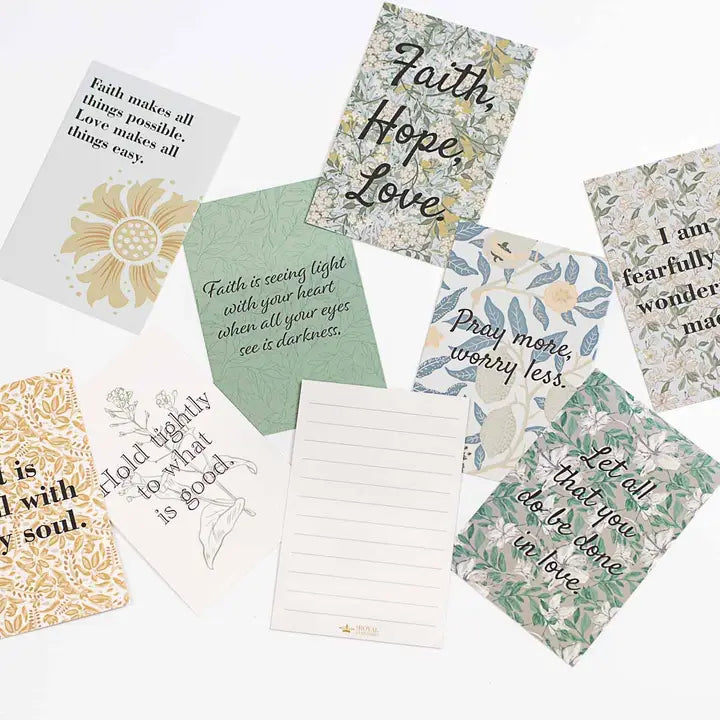 Faith makes all
things possible.
Love makes all
things easy.
Faith,
Hope,
Love.
I am
fearfully
wonder
mad
Faith is seeing light
with your heart
when all your eyes
see is darkness.
Pray more,
worry less.
t is
l with
y soul.
Hold tightly
to what
is good.
Let all
that you
do be done
in love.
ROYAL